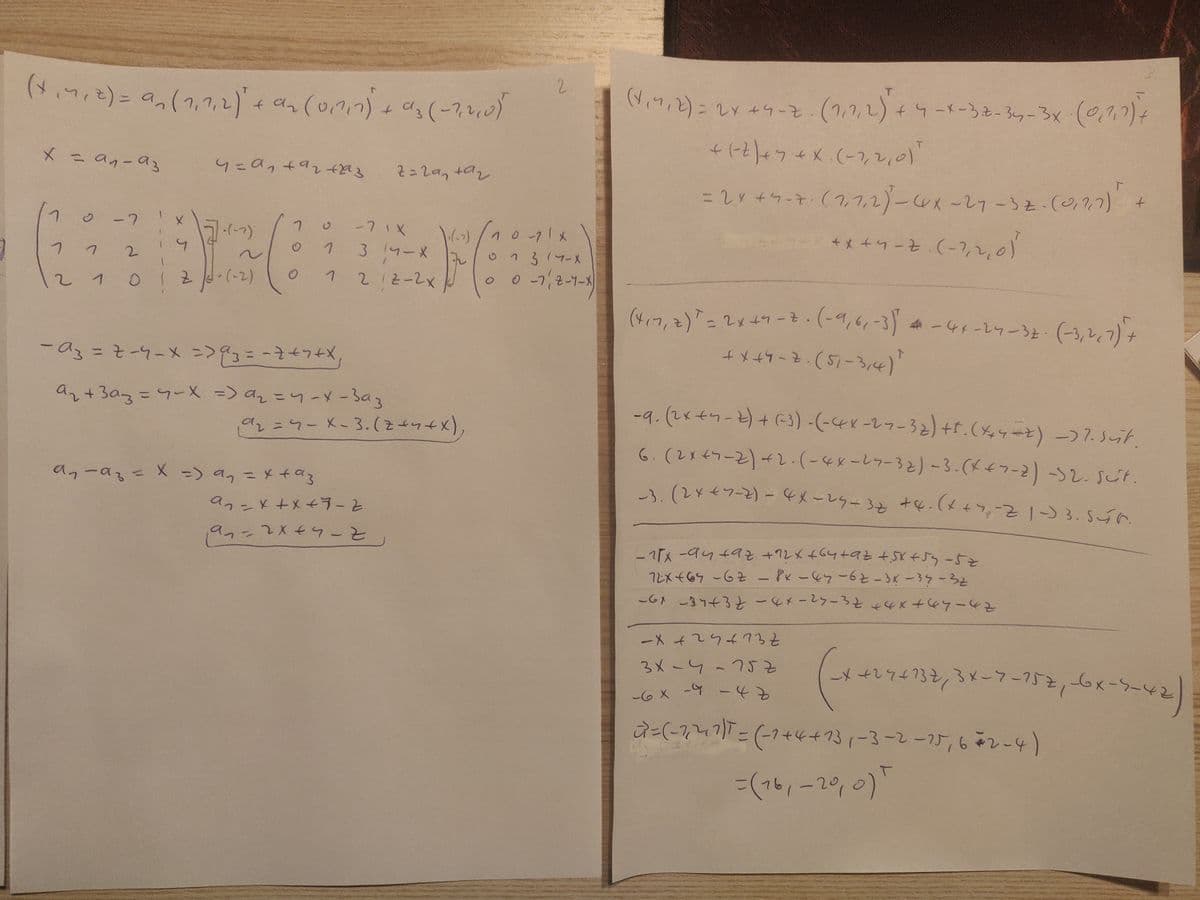 2
(x,y,z) = a₁(1,1,2)ᵀ + a₂(0,1,1)ᵀ + a₃(-1,2,0)ᵀ
x = a₁-a₃ y = a₁+a₂+2a₃ z = 2a₁+a₂
( 1 0 -1 | x ) ·(-1) ( 1 0 -1 | x ) ·(-1) ( 1 0 -1 | x )
( 1 1 2 | y ) ~ ( 0 1 3 | y-x ) ~ ( 0 1 3 | y-x )
( 2 1 0 | z ) ·(-2) ( 0 1 2 | z-2x ) ( 0 0 -1 | z-y-x )
-a₃ = z-y-x => a₃ = -z+y+x,
a₂+3a₃ = y-x => a₂ = y-x-3a₃
a₂ = y-x-3.(z+y+x),
a₁-a₃ = x => a₁ = x+a₃
a₁ = x+x+y-z
a₁ = 2x+y-z
(x,y,z) = 2x+y-z.(1,1,2)ᵀ + y-x-3z-3y-3x.(0,1,1)ᵀ+
+(-z)+y+x.(-1,2,0)ᵀ
= 2x+y-z.(1,1,2)ᵀ-4x-2y-3z.(0,1,1)ᵀ +
+x+y-z.(-1,2,0)ᵀ
(x,y,z)ᵀ = 2x+y-z.(-9,6,-3)ᵀ -4x-2y-3z.(-3,2,1)ᵀ+
+x+y-z.(5,-3,4)ᵀ
-9.(2x+y-z)+(-3).(-4x-2y-3z)+5.(x+y-z) -> 1. súř.
6.(2x+y-z)+2.(-4x-2y-3z)-3.(x+y-z) -> 2. súř.
-3.(2x+y-z)-4x-2y-3z+4.(x+y-z) -> 3. súř.
-18x-9y+9z+12x+6y+9z+5x+5y-5z
12x+6y-6z-8x-4y-6z-3x-3y-3z
-6x-3y+3z-4x-2y-3z+4x+4y-4z
-x+2y+13z
3x-y-15z (-x+2y+13z, 3x-y-15z, -6x-y-4z)
-6x-y-4z
a⃗=(-1,2,1)ᵀ = (-1+4+13, -3-2-15, 6-2-4)
= (16, -20, 0)ᵀ